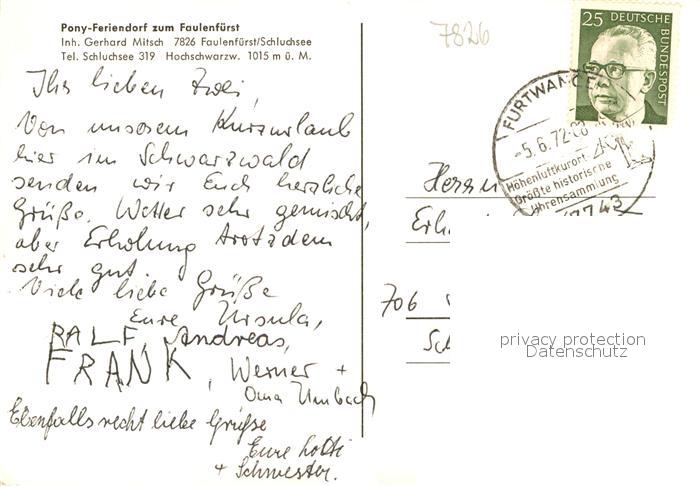 Pony-Feriendorf zum Faulenfürst
Inh. Gerhard Mitsch 7826 Faulenfürst/Schluchsee
Tel. Schluchsee 319 Hochschwarzw. 1015 m ü. M.
7826
25 DEUTSCHE BUNDESPOST
FURTWANGEN
-5.6.72-08
Höhenluftkurort
Größte historische
Uhrensammlung
7743
Ihr lieben Zwei,
Von unserem Kurzurlaub
hier im Schwarzwald
senden wir Euch herzliche
Grüße. Wetter sehr gemischt,
aber Erholung trotzdem
sehr gut.
Viele liebe Grüße
Eure Ursula,
RALF, Andreas,
FRANK, Werner +
Oma Umbach
Ebenfalls recht liebe Grüße
Eure Lotti
+ Schwester.
Herrn
Erh
706
Sch
privacy protection
Datenschutz